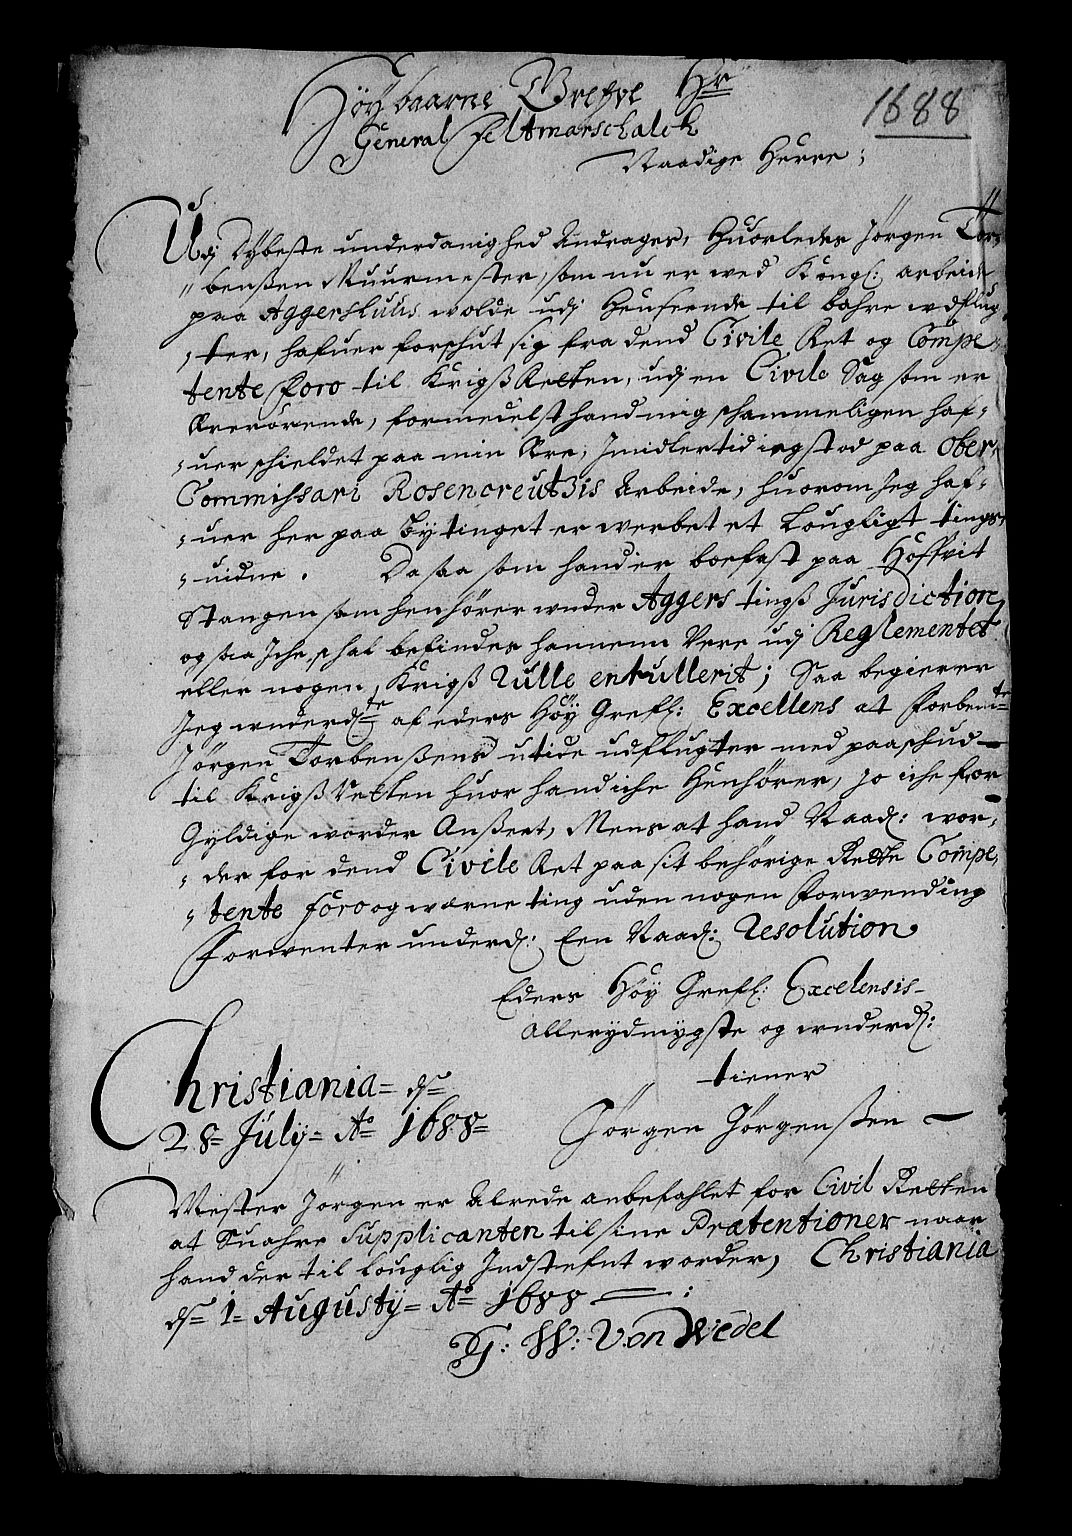 Höybaarne Grefve Hr
1688
General Feltmarschalck
Naadige Herre;
Udj Dybeste underdanighed Andrages, Huorledes Jörgen Tor„
„benßen Muurmester, som nu er ved Kongl: arbeide
paa Aggershuus wolde udj Henseende til bahre udflug„
„ter, hafuer forschut sig fra dend Civile Ret og Compe„
tente Foro til KrigßRetten, udj en Civile Sag som er
Ærerörende, formedelst hand mig schammeligen haf„
„uer schieldet paa min Ære, Imidlertid ieg stod paa Ober„
Commissari Rosencreutzis Arbeide, huorom Jeg haf„
„uer her paa Bytinget erwerbet et Lougligt tings„
„uidne. Da saa som hand er boefast paa Hoffvit
Stangen som henhörer under Aggers tingß Jurisdiction,
og saa Iche schal befindes hannem Vere udj Reglementet
eller nogen Krigß Rulle enrullerit; Saa begierer
Jeg underdte af eders Höy Grefl: Excellens at forbente
Jörgen Torbenßens utide udflugter med paaschud
til KrigßRetten huor hand iche Henhörer, jo iche for
Gyldige worder Anßeet, Mens at hand Naad: wor„
„der for dend Civile Ret paa sit behörige Rette Compe„
„tente foro og werne ting uden nogen Forwending
Forventer underd: Een Naad: Resolution
Eders Höy Grefl: Excelensis
allerydmygste og underd:
tiener
Christiania dn
28 July Ao 1688
Jörgen Jörgensten
Mester Jörgen er Alrede anbefahlet for Civil Retten
at Suahre Supplicanten til sine Prætentioner naar
hand der til louglig Indstefnt worder, Christiania
dn 1 Augusty Ao 1688
G: W: Von Wedel